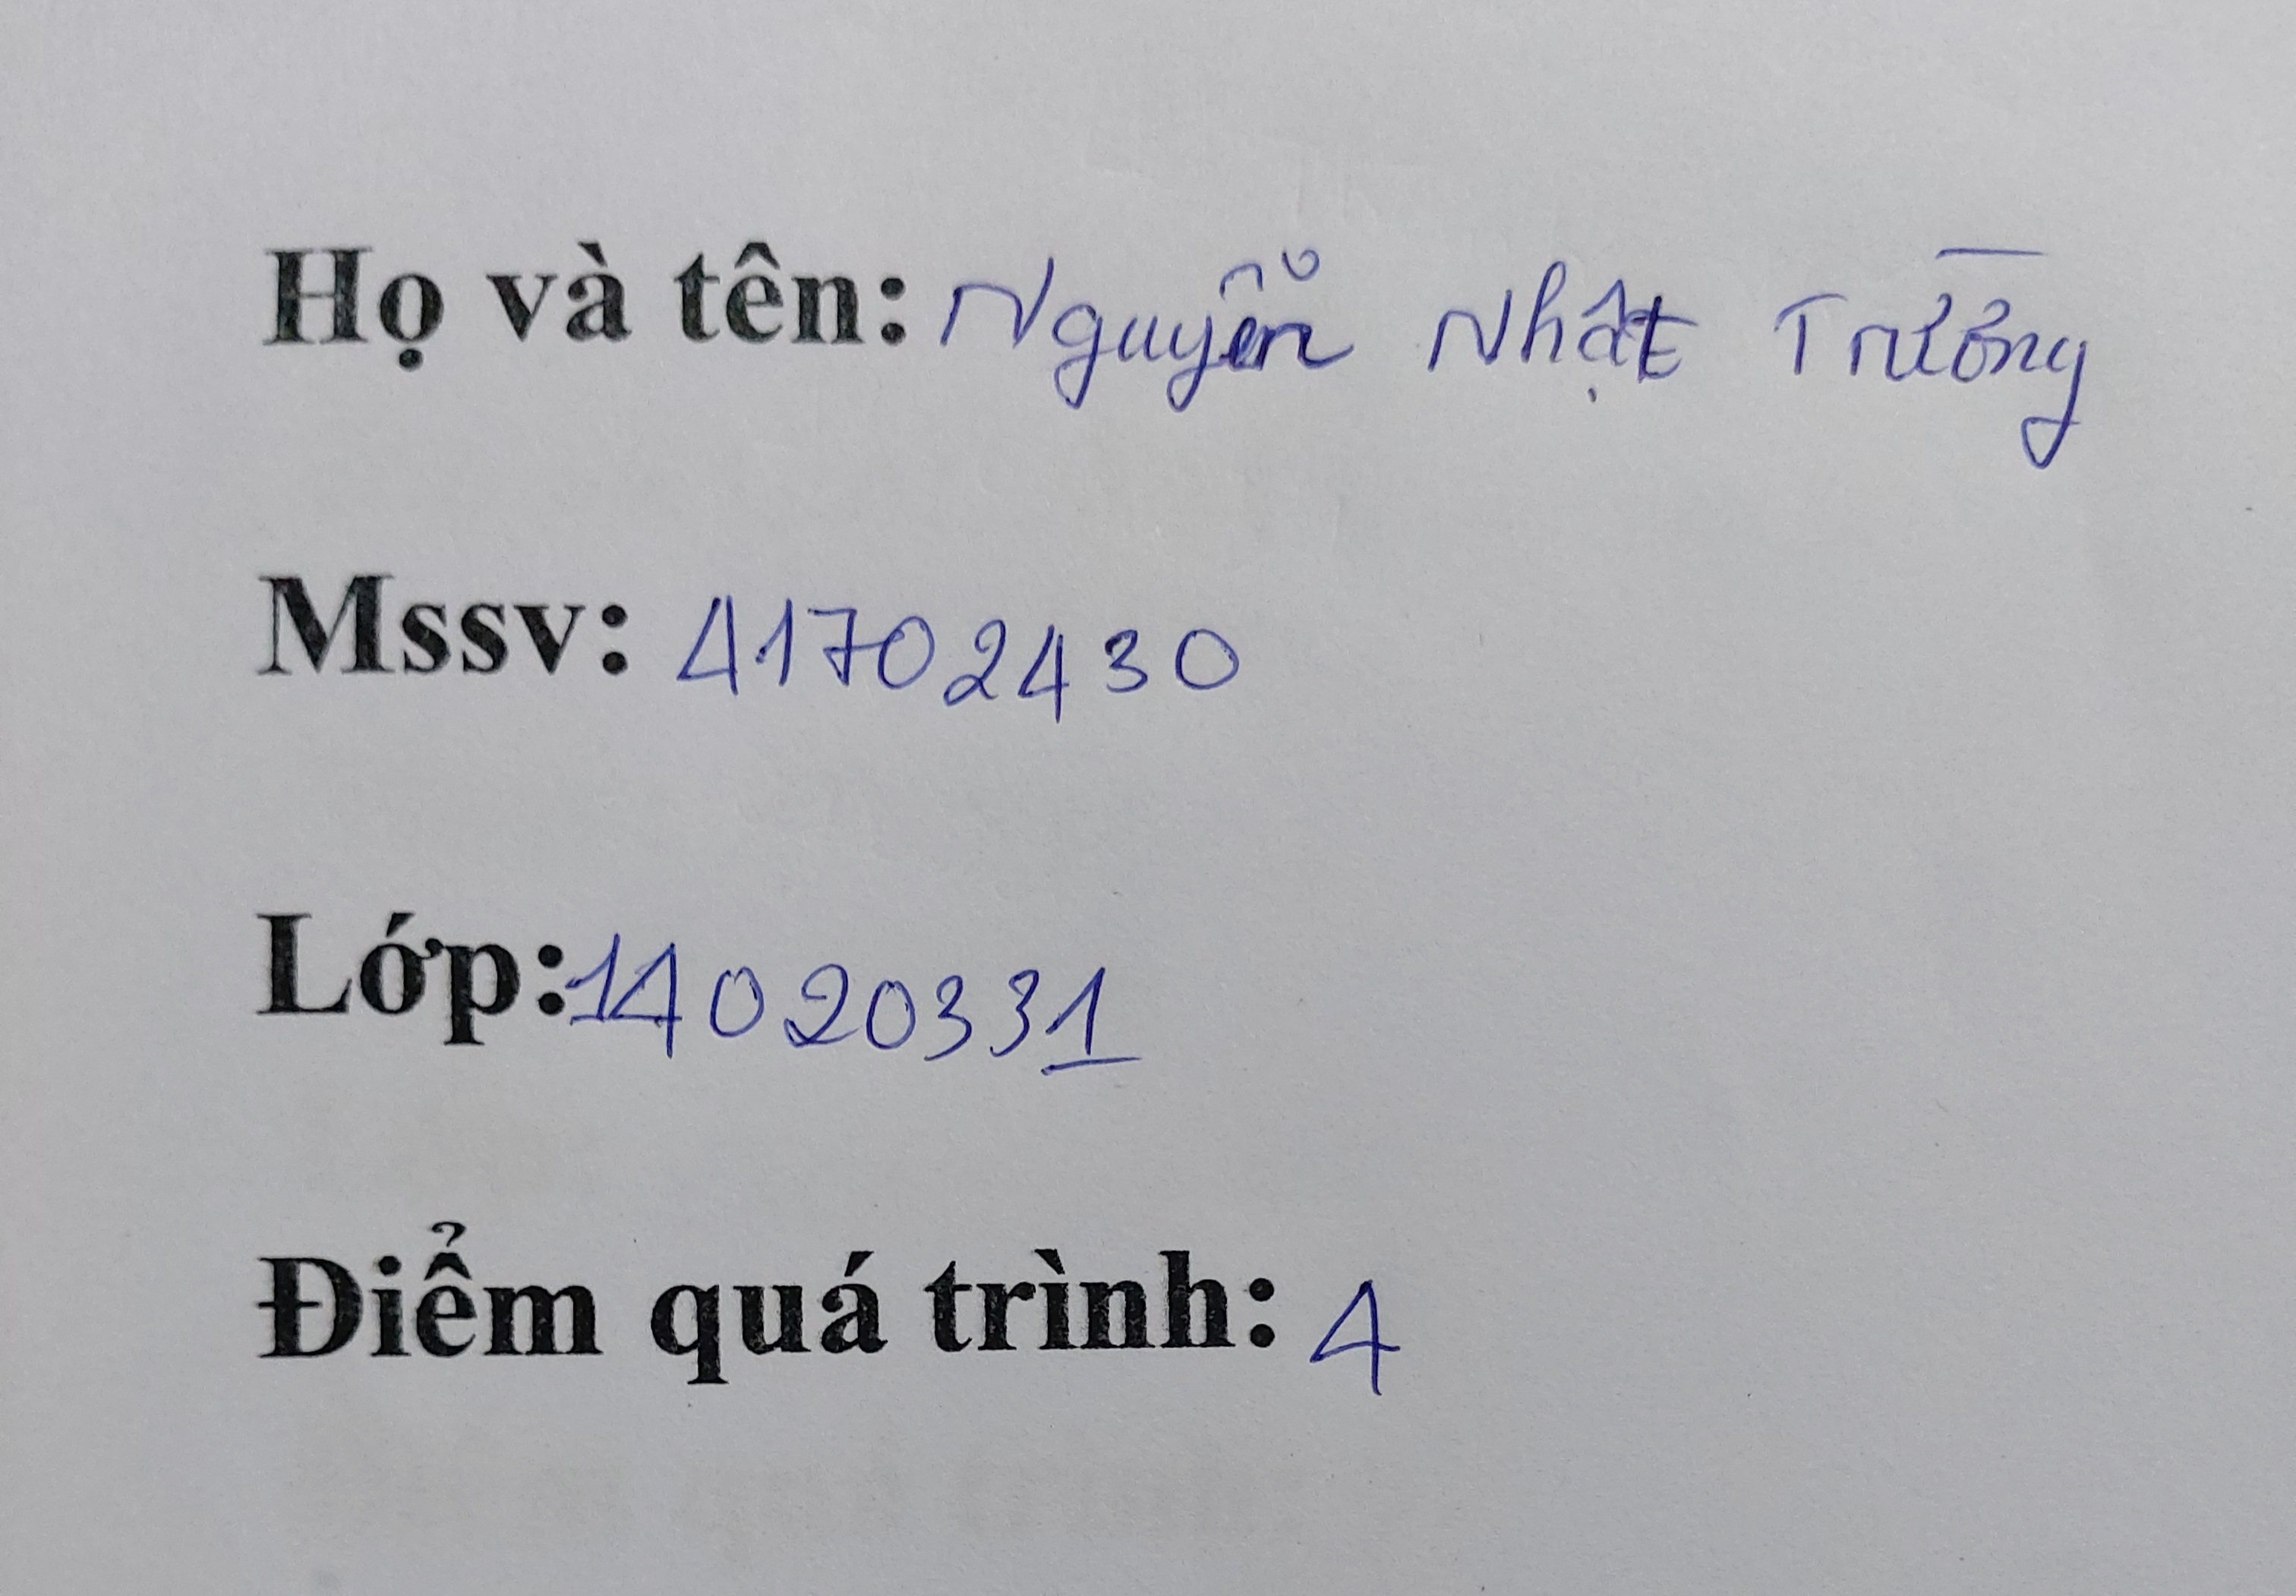 Họ và tên: Nguyễn Nhật Trường
Mssv: 41702430
Lớp: 14020331
Điểm quá trình: 4